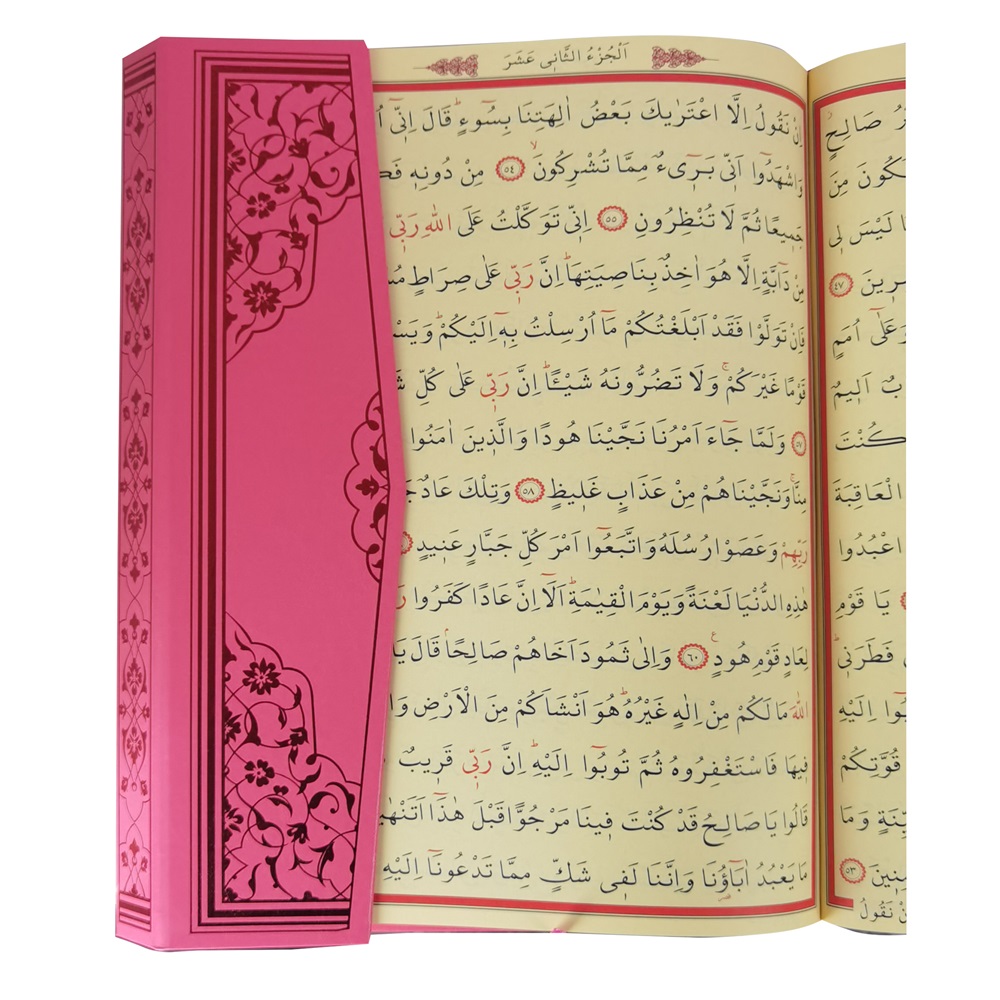 صَالِحٍ
مِنَ
لَيْسَ لٖى
٤٧
وَعَلٰٓى اُمَمٍ
اَلٖيمٌ
كُنْتَ
الْعَاقِبَةَ
اعْبُدُوا
يَا قَوْمِ
فَطَرَنٖى
اِلَيْهِ
قُوَّتِكُمْ
وَمَا
٥٣
نَقُولُ
اَلْجُزْءُ الثَّانٖى عَشَرَ
اِنْ نَقُولُ اِلَّا اعْتَرٰيكَ بَعْضُ اٰلِهَتِنَا بِسُٓوءٍ قَالَ اِنّٖٓى
وَاشْهَدُٓوا اَنّٖى بَرٖٓىءٌ مِمَّا تُشْرِكُونَ ٥٤ مِنْ دُونِهٖ
جَمٖيعًا ثُمَّ لَا تُنْظِرُونِ ٥٥ اِنّٖى تَوَكَّلْتُ عَلَى اللّٰهِ رَبّٖى
مِنْ دَٓابَّةٍ اِلَّا هُوَ اٰخِذٌ بِنَاصِيَتِهَا اِنَّ رَبّٖى عَلٰى صِرَاطٍ
فَاِنْ تَوَلَّوْا فَقَدْ اَبْلَغْتُكُمْ مَٓا اُرْسِلْتُ بِهٖٓ اِلَيْكُمْ
قَوْمًا غَيْرَكُمْ وَلَا تَضُرُّونَهُ شَيْـًٔا اِنَّ رَبّٖى عَلٰى كُلِّ
٥٧ وَلَمَّا جَٓاءَ اَمْرُنَا نَجَّيْنَا هُودًا وَالَّذٖينَ اٰمَنُوا
مِنَّا وَنَجَّيْنَاهُمْ مِنْ عَذَابٍ غَلٖيظٍ ٥٨ وَتِلْكَ عَادٌ
رَبِّهِمْ وَعَصَوْا رُسُلَهُ وَاتَّبَعُٓوا اَمْرَ كُلِّ جَبَّارٍ عَنٖيدٍ
هٰذِهِ الدُّنْيَا لَعْنَةً وَيَوْمَ الْقِيٰمَةِ اَلَٓا اِنَّ عَادًا كَفَرُوا
لِعَادٍ قَوْمِ هُودٍ ٦٠ وَاِلٰى ثَمُودَ اَخَاهُمْ صَالِحًا قَالَ
اللّٰهَ مَا لَكُمْ مِنْ اِلٰهٍ غَيْرُهُ هُوَ اَنْشَاَكُمْ مِنَ الْاَرْضِ
فٖيهَا فَاسْتَغْفِرُوهُ ثُمَّ تُوبُٓوا اِلَيْهِ اِنَّ رَبّٖى قَرٖيبٌ
قَالُوا يَا صَالِحُ قَدْ كُنْتَ فٖينَا مَرْجُوًّا قَبْلَ هٰذَٓا
مَا يَعْبُدُ اٰبَٓاؤُنَا وَاِنَّنَا لَفٖى شَكٍّ مِمَّا تَدْعُونَٓا اِلَيْهِ